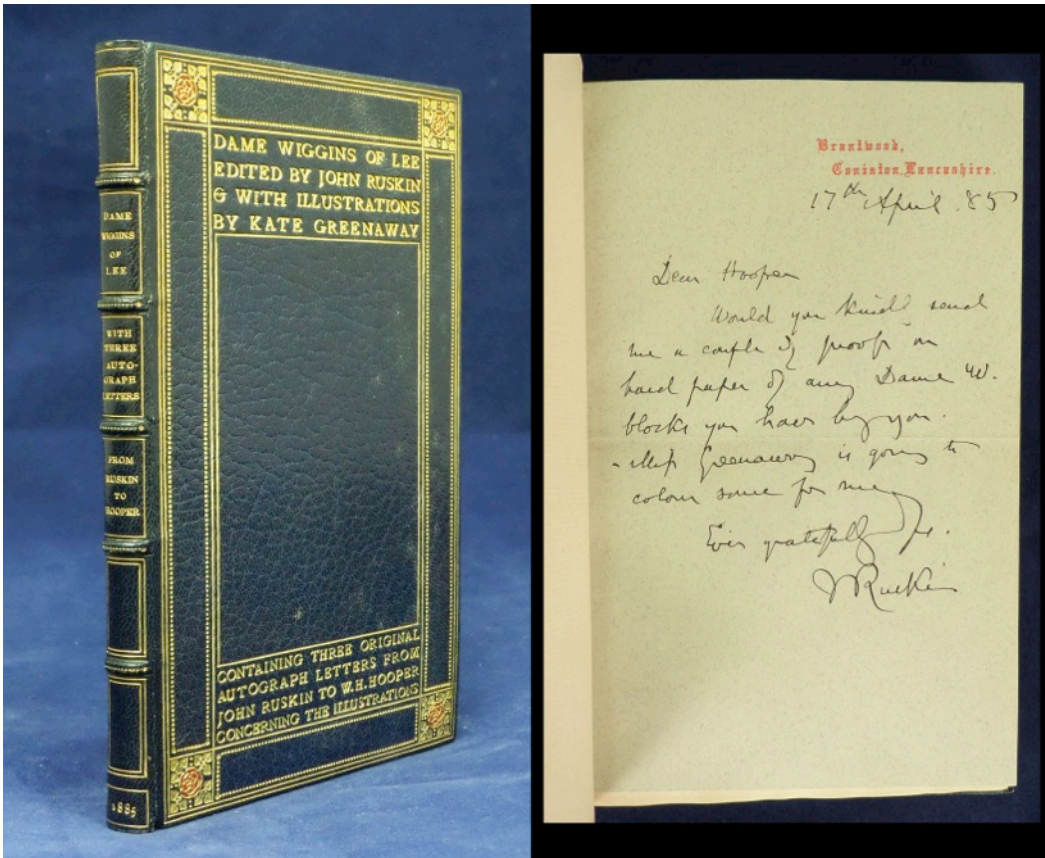 DAME
WIGGINS
OF
LEE
WITH
THREE
AUTO-
GRAPH
LETTERS
FROM
RUSKIN
TO
HOOPER
1885
DAME WIGGINS OF LEE
EDITED BY JOHN RUSKIN
& WITH ILLUSTRATIONS
BY KATE GREENAWAY
CONTAINING THREE ORIGINAL
AUTOGRAPH LETTERS FROM
JOHN RUSKIN TO W.H.HOOPER
CONCERNING THE ILLUSTRATIONS
Brantwood,
Coniston, Lancashire.
17th April. 85
Dear Hooper
Would you kindly send
me a couple of proofs on
hard paper of any Dame W.
blocks you have by you.
-Miss Greenaway is going to
colour some for me
Ever gratefully yrs.
J Ruskin